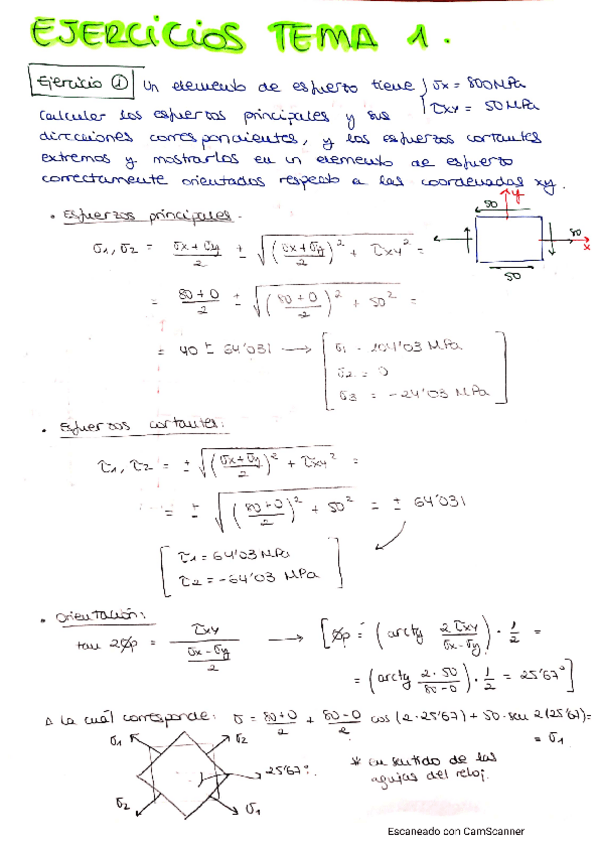 EJERCICIOS TEMA 1.
Ejercicio ① Un elemento de esfuerzo tiene { σx = 800MPa
calcular los esfuerzos principales y sus { τxy = 50MPa
direcciones correspondientes, y los esfuerzos cortantes
extremos y mostrarlos en un elemento de esfuerzo
correctamente orientados respecto a las coordenadas xy.
• Esfuerzos principales.
σ1, σ2 = (σx + σy)/2 ± √(((σx + σy)/2)² + τxy²) =
= (80 + 0)/2 ± √(((80 + 0)/2)² + 50²) =
= 40 ± 64'031 → [ σ1 = 104'03 MPa
σ2 = 0
σ3 = -24'03 MPa ]
50
y
80
x
50
• Esfuerzos cortantes:
τ1, τ2 = ± √(((σx + σy)/2)² + τxy²) =
= ± √(((80 + 0)/2)² + 50²) = ± 64'031
[ τ1 = 64'03 MPa
τ2 = -64'03 MPa ]
• Orientación:
tan 2Øp = τxy / ((σx - σy)/2) → [Øp = (arctg 2τxy/(σx - σy)) · 1/2 =
= (arctg (2 · 50)/(80 - 0)) · 1/2 = 25'67°]
Δ La cuál corresponde: σ = (80+0)/2 + (80-0)/2 cos (2·25'67) + 50·sen 2(25'67) =
= σ1
σ1
σ2
25'67°.
σ2
σ1
* en sentido de las
agujas del reloj.
Escaneado con CamScanner